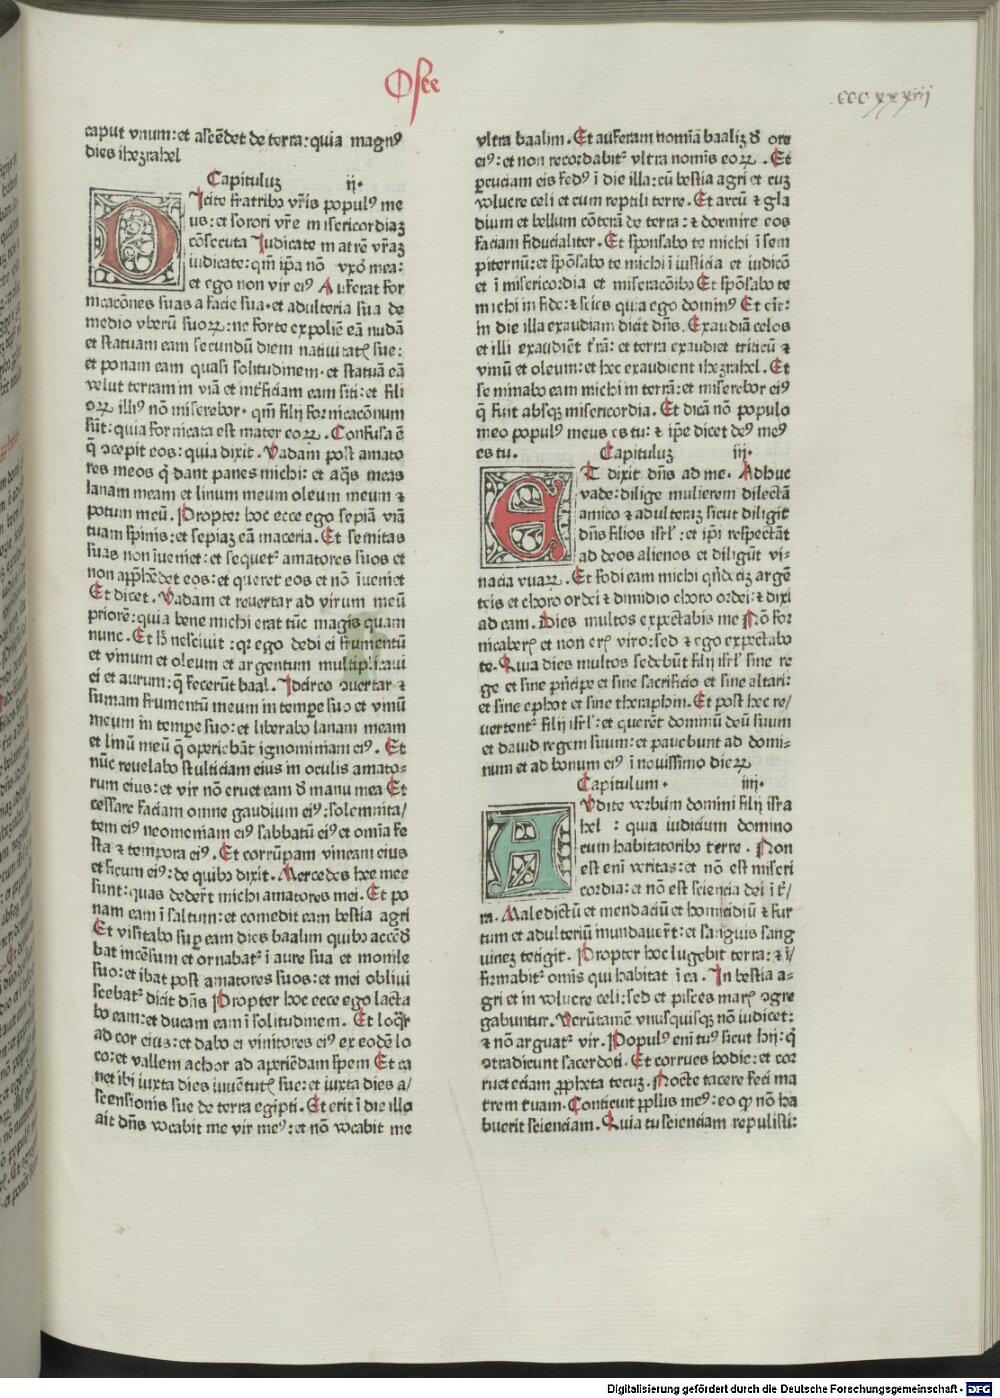 Osee
cccxxxiii
caput vnum: et ascēdet de terra: quia magnꝰ
dies ihezrahel
Capituluꝫ ij.
DIcite fratribꝰ vr̄is populꝰ me
us: et sorori vr̄e misericordiaꝫ
cōsecuta Iudicate matrē vr̄aꝫ
iudicate: qm̄ ip̄a nō vxor mea:
et ego non vir eiꝰ Auferat for
nicacōnes suas a facie sua. et adulteria sua de
medio vberū suoꝝ: ne forte expoliē eā nudā
et statuam eam secundū diem natiuitatꝭ sue:
et ponam eam quasi solitudinem. et statuā eā
velut terram in viā et intꝭficiam eam siti: et fili
oꝝ illiꝰ nō miserebor. qm̄ filij fornicacōnum
sūt: quia fornicata est mater eoꝝ. Confusa ē
q̄ ꝯcepit eos: quia dixit. Vadam post amato
res meos q̇ dant panes michi: et aq̄s meas
lanam meam et linum meum oleum meum ⁊
potum meū. Propter hoc ecce ego sepiā viā
tuam spinis: et sepiaꝫ eā maceria. Et semitas
suas non īueniet: et sequetᷣ amatores suos et
non app̄hēdet eos: et queret eos et nō īueniet
Et dicet. Vadam et reuertar ad virum meū
priorē: quia bene michi erat tūc magis quam
nunc. Et h̄ nesciuit: qꝛ ego dedi ei frumentū
et vinum et oleum et argentum multiplicaui
ei et aurum: q̄ fecerūt baal. Idcirco ꝯuertar ⁊
sumam frumentū meum in tempe suo et vinū
meum in tempe suo: et liberabo lanam meam
et linū meū q̄ operiebāt ignominiam eiꝰ. Et
nūc reuelabo stulticiam eius in oculis amato-
rum eius: et vir nō eruet eam d̄ manu mea Et
cessare faciam omne gaudium eiꝰ: solemnita/
tem eiꝰ neomeniam eiꝰ sabbatū eiꝰ et om̄ia fe
sta ⁊ tempora eiꝰ. Et corrūpam vineam eius
et ficum eiꝰ: de quibꝰ dixit. Mercedes hee mee
sunt: quas dederūt michi amatores mei. Et po
nam eam ī saltum: et comedit eam bestia agri
Et visitabo sup eam dies baalim quibꝰ accēd̄
bat incēsum et ornabatᷣ ī aure sua et monile
suo: et ibat post amatores suos: et mei obliui
scebatᷣ dicit dn̄s Propter hoc ecce ego lacta
bo eam: et ducam eam ī solitudinem. Et loq̄r
ad cor eius: et dabo ei vinitores eiꝰ ex eodē lo
co: et vallem achor ad aperiēdam spem Et ca
net ibi iuxta dies iuuētutꝭ sue: et iuxta dies a/
scensionis sue de terra egipti. Et erit ī die illa
ait dn̄s vocabit me vir meꝰ: et nō vocabit me
vltra baalim. Et auferam nomīa baaliꝫ d̄ ore
eiꝰ: et non recordabitᷣ vltra nominis eoꝝ. Et
ꝑcuciam eis fedꝰ ī die illa: cū bestia agri et cuꝫ
volucre celi et cum reptili terre. Et arcū ⁊ gla
dium et bellum cōterā de terra: ⁊ dormire eos
faciam fiducialiter. Et sponsabo te michi ī sem
piternū: et spōsabo te michi ī iusticia et iudicō
et ī misericordia et miseracōibꝰ Et spōsabo te
michi in fide: ⁊ scies quia ego dominꝰ Et eīt:
in die illa exaudiam dicit dn̄s. Exaudiā celos
et illi exaudiēt t̄rā: et terra exaudiet triticū ⁊
vinū et oleum: et hec exaudient ihezrahel. Et
seminabo eam michi in terrā: et miserebor eiꝰ
q̄ fuit absqꝫ misericordia. Et dicā nō populo
meo populꝰ meus es tu: ⁊ ip̄e dicet deꝰ meꝰ
es tu. Capituluꝫ iij.
ET dixit dn̄s ad me. Adhuc
vade: dilige mulierem dilectā
amico ⁊ adulteraꝫ sicut diligit
dn̄s filios isrl̄: et ip̄i respectāt
ad deos alienos et diligūt vi-
nacia vuaꝝ. Et fodi eam michi qn̄deciꝫ argē
teis et choro ordei ⁊ dimidio choro ordei: ⁊ dixi
ad eam. Dies multos expectabis me Nō for
nicaberꝭ et non erꝭ viro: sed ⁊ ego expectabo
te. Quia dies multos sedebūt filij isrl̄ sine re
ge et sine prīcipe et sine sacrificio et sine altari:
et sine ephot et sine theraphin. Et post hec re/
uertentᷣ filij isrl̄: et querēt dominū deū suum
et dauid regem suum: et pauebunt ad domi-
num et ad bonum eiꝰ ī nouissimo dieꝝ
Capitulum. iiij.
AVdite verbum domini filij isra
hel: quia iudicium domino
cum habitatoribꝰ terre. Non
est eni veritas: et nō est miseri
cordia: et nō est sciencia dei ī t̄r/
ra. Maledictū et mendaciū et homicidiū ⁊ fur
tum et adulteriū inundauer̄t: et sanguis sang
uineꝫ tetigit. Propter hoc lugebit terra: ⁊ ī/
firmabitᷣ omīs qui habitat ī ea. In bestia a-
gri et in volucre celi: sed et pisces marꝭ ꝯgre
gabuntur. Verūtamē vnusquisqꝫ nō iudicet:
⁊ nō arguatᷣ vir. Populꝰ eni tuꝰ sicut hij: q̇
ꝯtradicunt sacerdoti. Et corrues hodie: et cor
ruet eciam ꝓpheta tecuꝫ. Nocte tacere feci ma
trem tuam. Conticuit pp̄lus meꝰ: eo ꝙ nō ha
buerit scienciam. Quia tu scienciam repulisti:
Digitalisierung gefördert durch die Deutsche Forschungsgemeinschaft - DFG